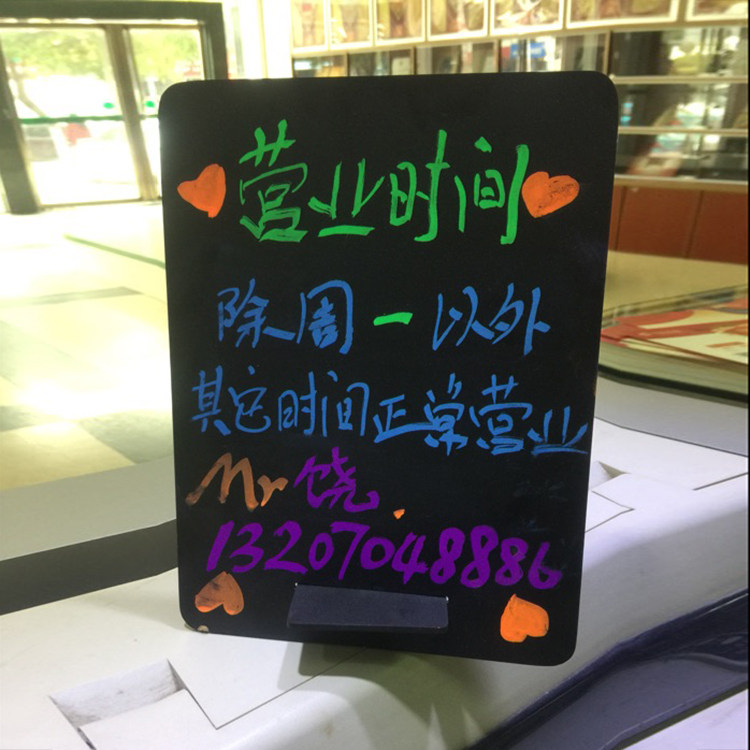 营业时间
除周一以外
其它时间正常营业
Mr饶
13207048886